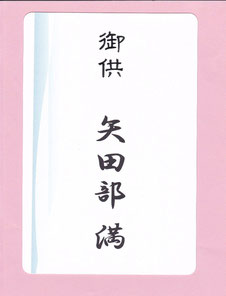 御供
矢田部 満